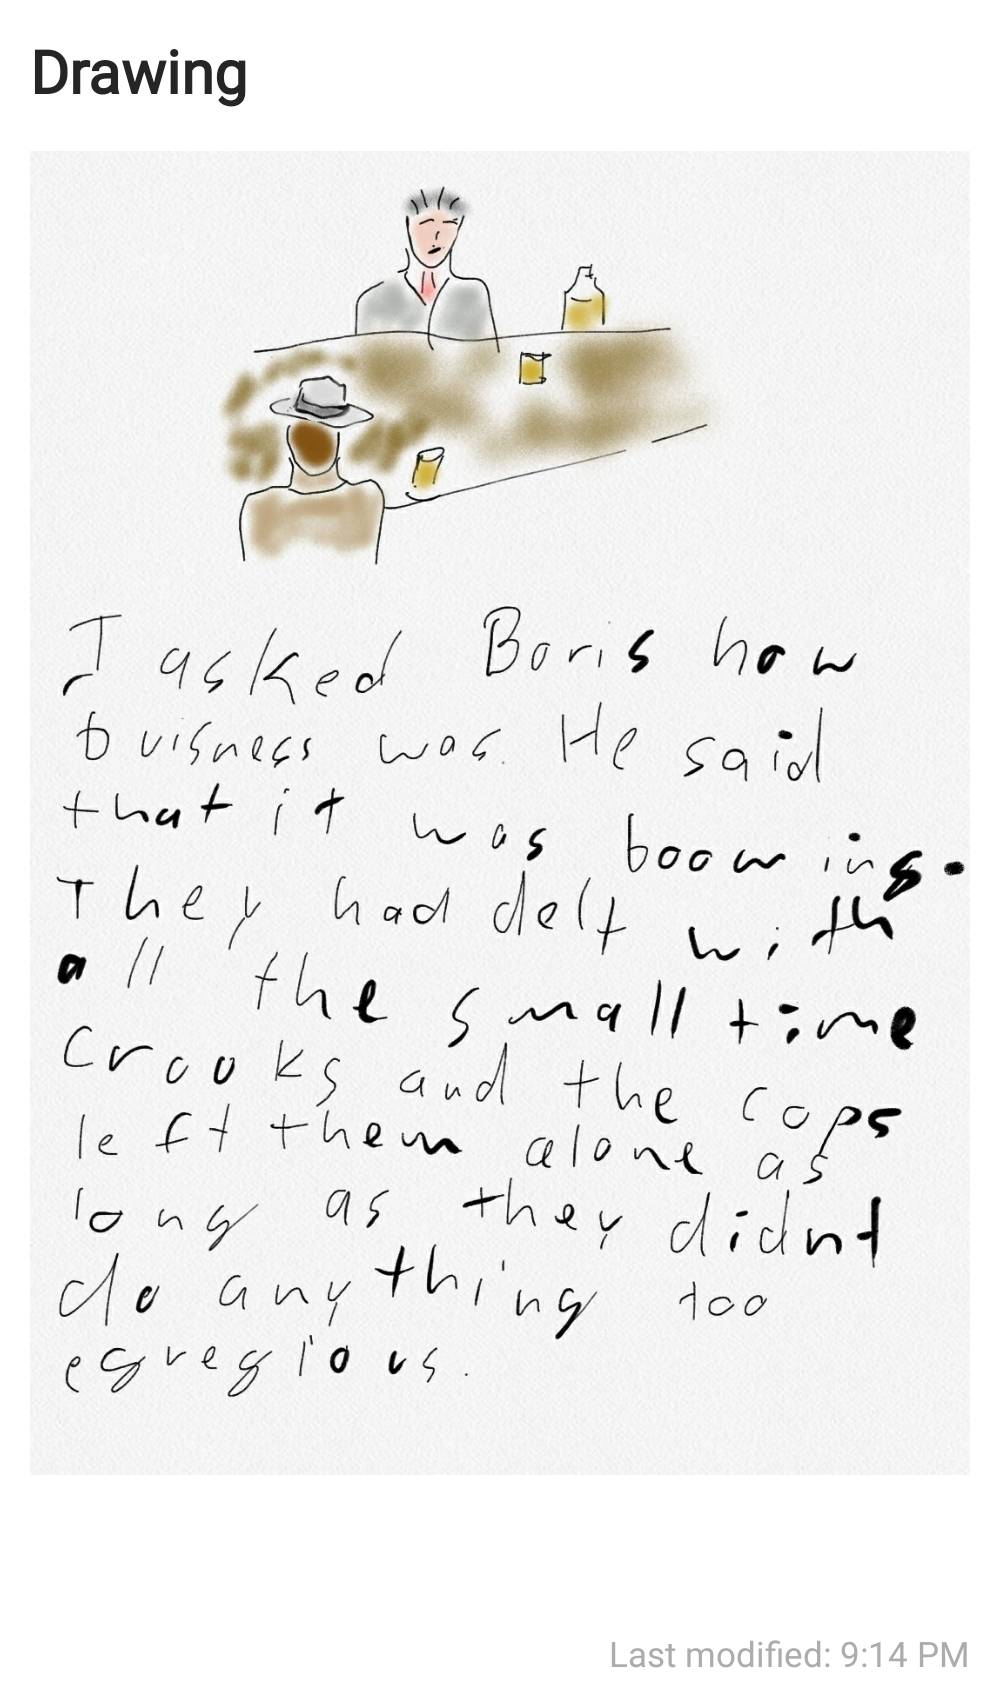 Drawing
I asked Boris how
buisness was. He said
that it was booming.
They had delt with
all the small time
crooks and the cops
left them alone as
long as they didnt
do anything too
egregious.
Last modified: 9:14 PM